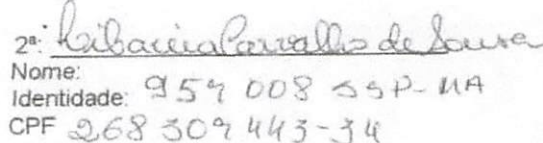 2ª: Libania Carvalho de Sousa
Nome:
Identidade: 957 008 SSP-MA
CPF 268 307 443-34